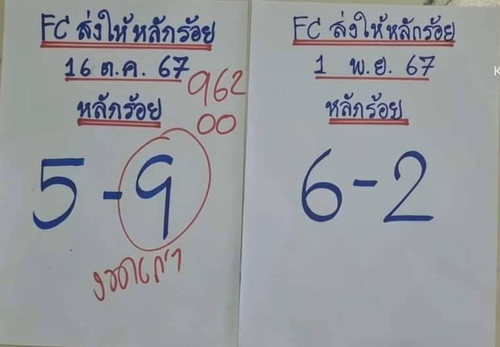 FC ส่งให้หลักร้อย
16 ต.ค. 67
962
00
หลักร้อย
5-9
งวดเก่า
FC ส่งให้หลักร้อย
1 พ.ย. 67
หลักร้อย
6-2
K